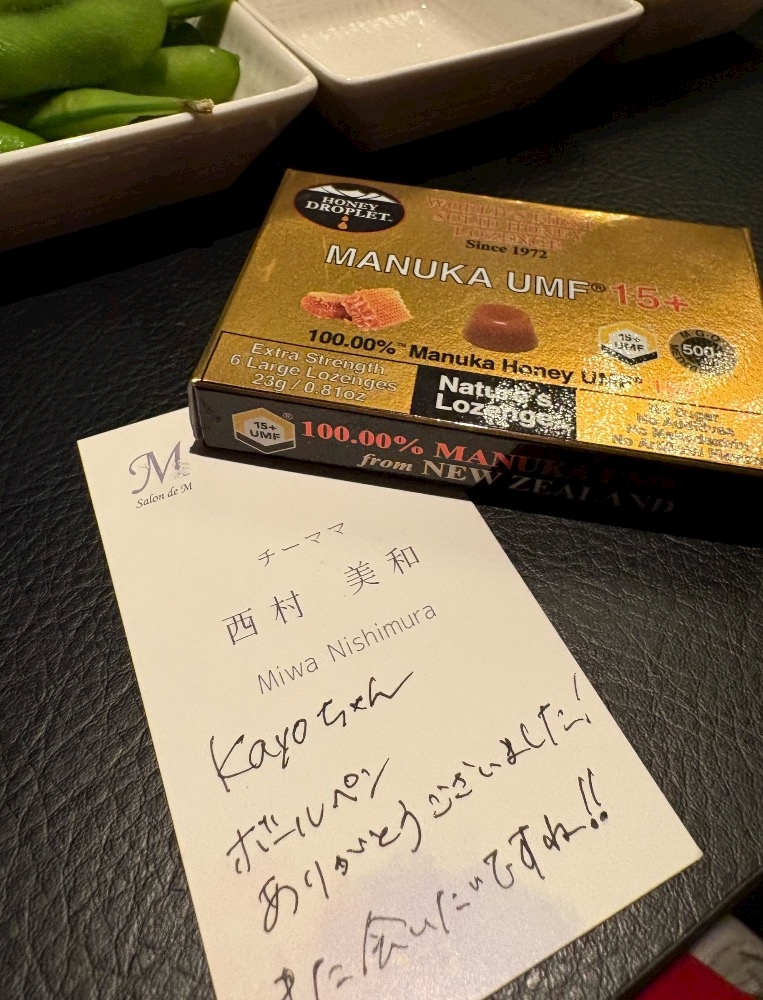 HONEY
DROPLET
Since 1972
MANUKA UMF® 15+
100.00%™ Manuka Honey UMF®
15+
UMF
500+
Extra Strength
6 Large Lozenges
23g / 0.81oz
Nature's
Lozenge
No Additives
15+
UMF
100.00% MANUKA
from NEW ZEALAND
M
Salon de M
チーママ
西村 美和
Miwa Nishimura
Kayoちゃん
ボールペン
ありがとうございました!
また会いたいですね!!